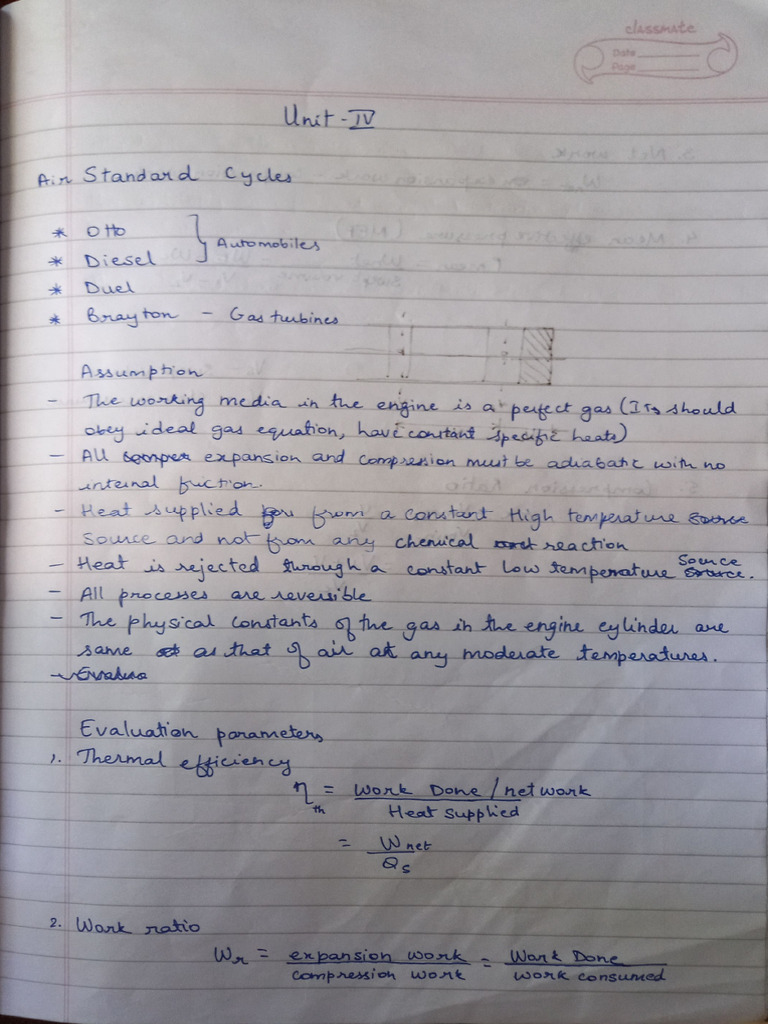 classmate
Date
Page
Unit - IV
Air Standard Cycles
* Otto
* Diesel
Automobiles
* Duel
* Brayton - Gas turbines
Assumption
- The working media in the engine is a perfect gas (It should
obey ideal gas equation, have constant specific heats)
- All comper expansion and compression must be adiabatic with no
internal friction.
- Heat supplied from a constant High temperature source
source and not from any chemical reaction
- Heat is rejected through a constant low temperature source.
- All processes are reversible
- The physical constants of the gas in the engine cylinder are
same as that of air at any moderate temperatures.
Evaluation parameters
1. Thermal efficiency
ηth = Work Done / net work
Heat supplied
= Wnet
Qs
2. Work ratio
Wr = expansion work = Work Done
compression work work consumed